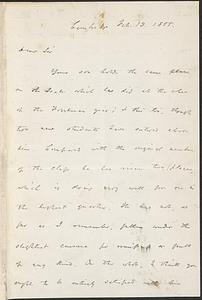 Cambridge Feb. 12. 1855.
Dear Sir
Your son holds the same place
on the scale which he did at the close
of the Freshman year; & this too, though
two new students have entered above
him. Compared with the original number
of the class he has risen two places,
which is doing very well for one in
the highest quarter. He has not, so
far as I remember, fallen under the
slightest censure for omission or fault
of any kind. On the whole, I think you
ought to be entirely satisfied with him